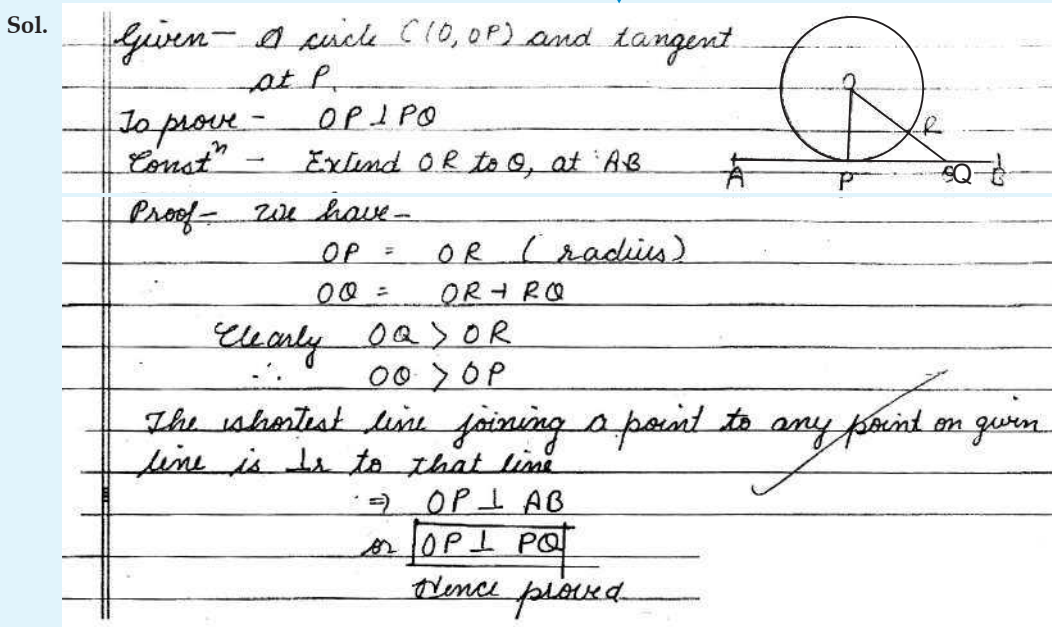 Sol.
Given - A circle C(O, OP) and tangent
at P.
To prove - OP ⊥ PQ
Constⁿ - Extend OR to Q, at AB
O
R
A
P
Q
B
Proof - We have -
OP = OR (radius)
OQ = OR + RQ
Clearly OQ > OR
∴ OQ > OP
The shortest line joining a point to any point on given
line is ⊥r to that line
⇒ OP ⊥ AB
or OP ⊥ PQ
Hence proved